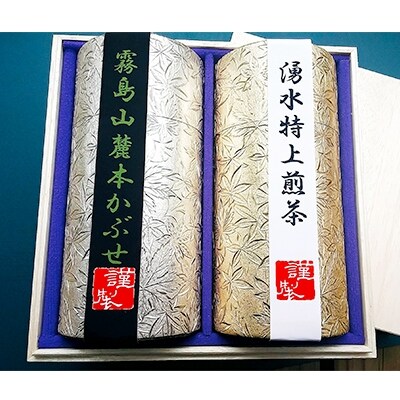 湧水特上煎茶
謹製
霧島山麓本かぶせ
謹製